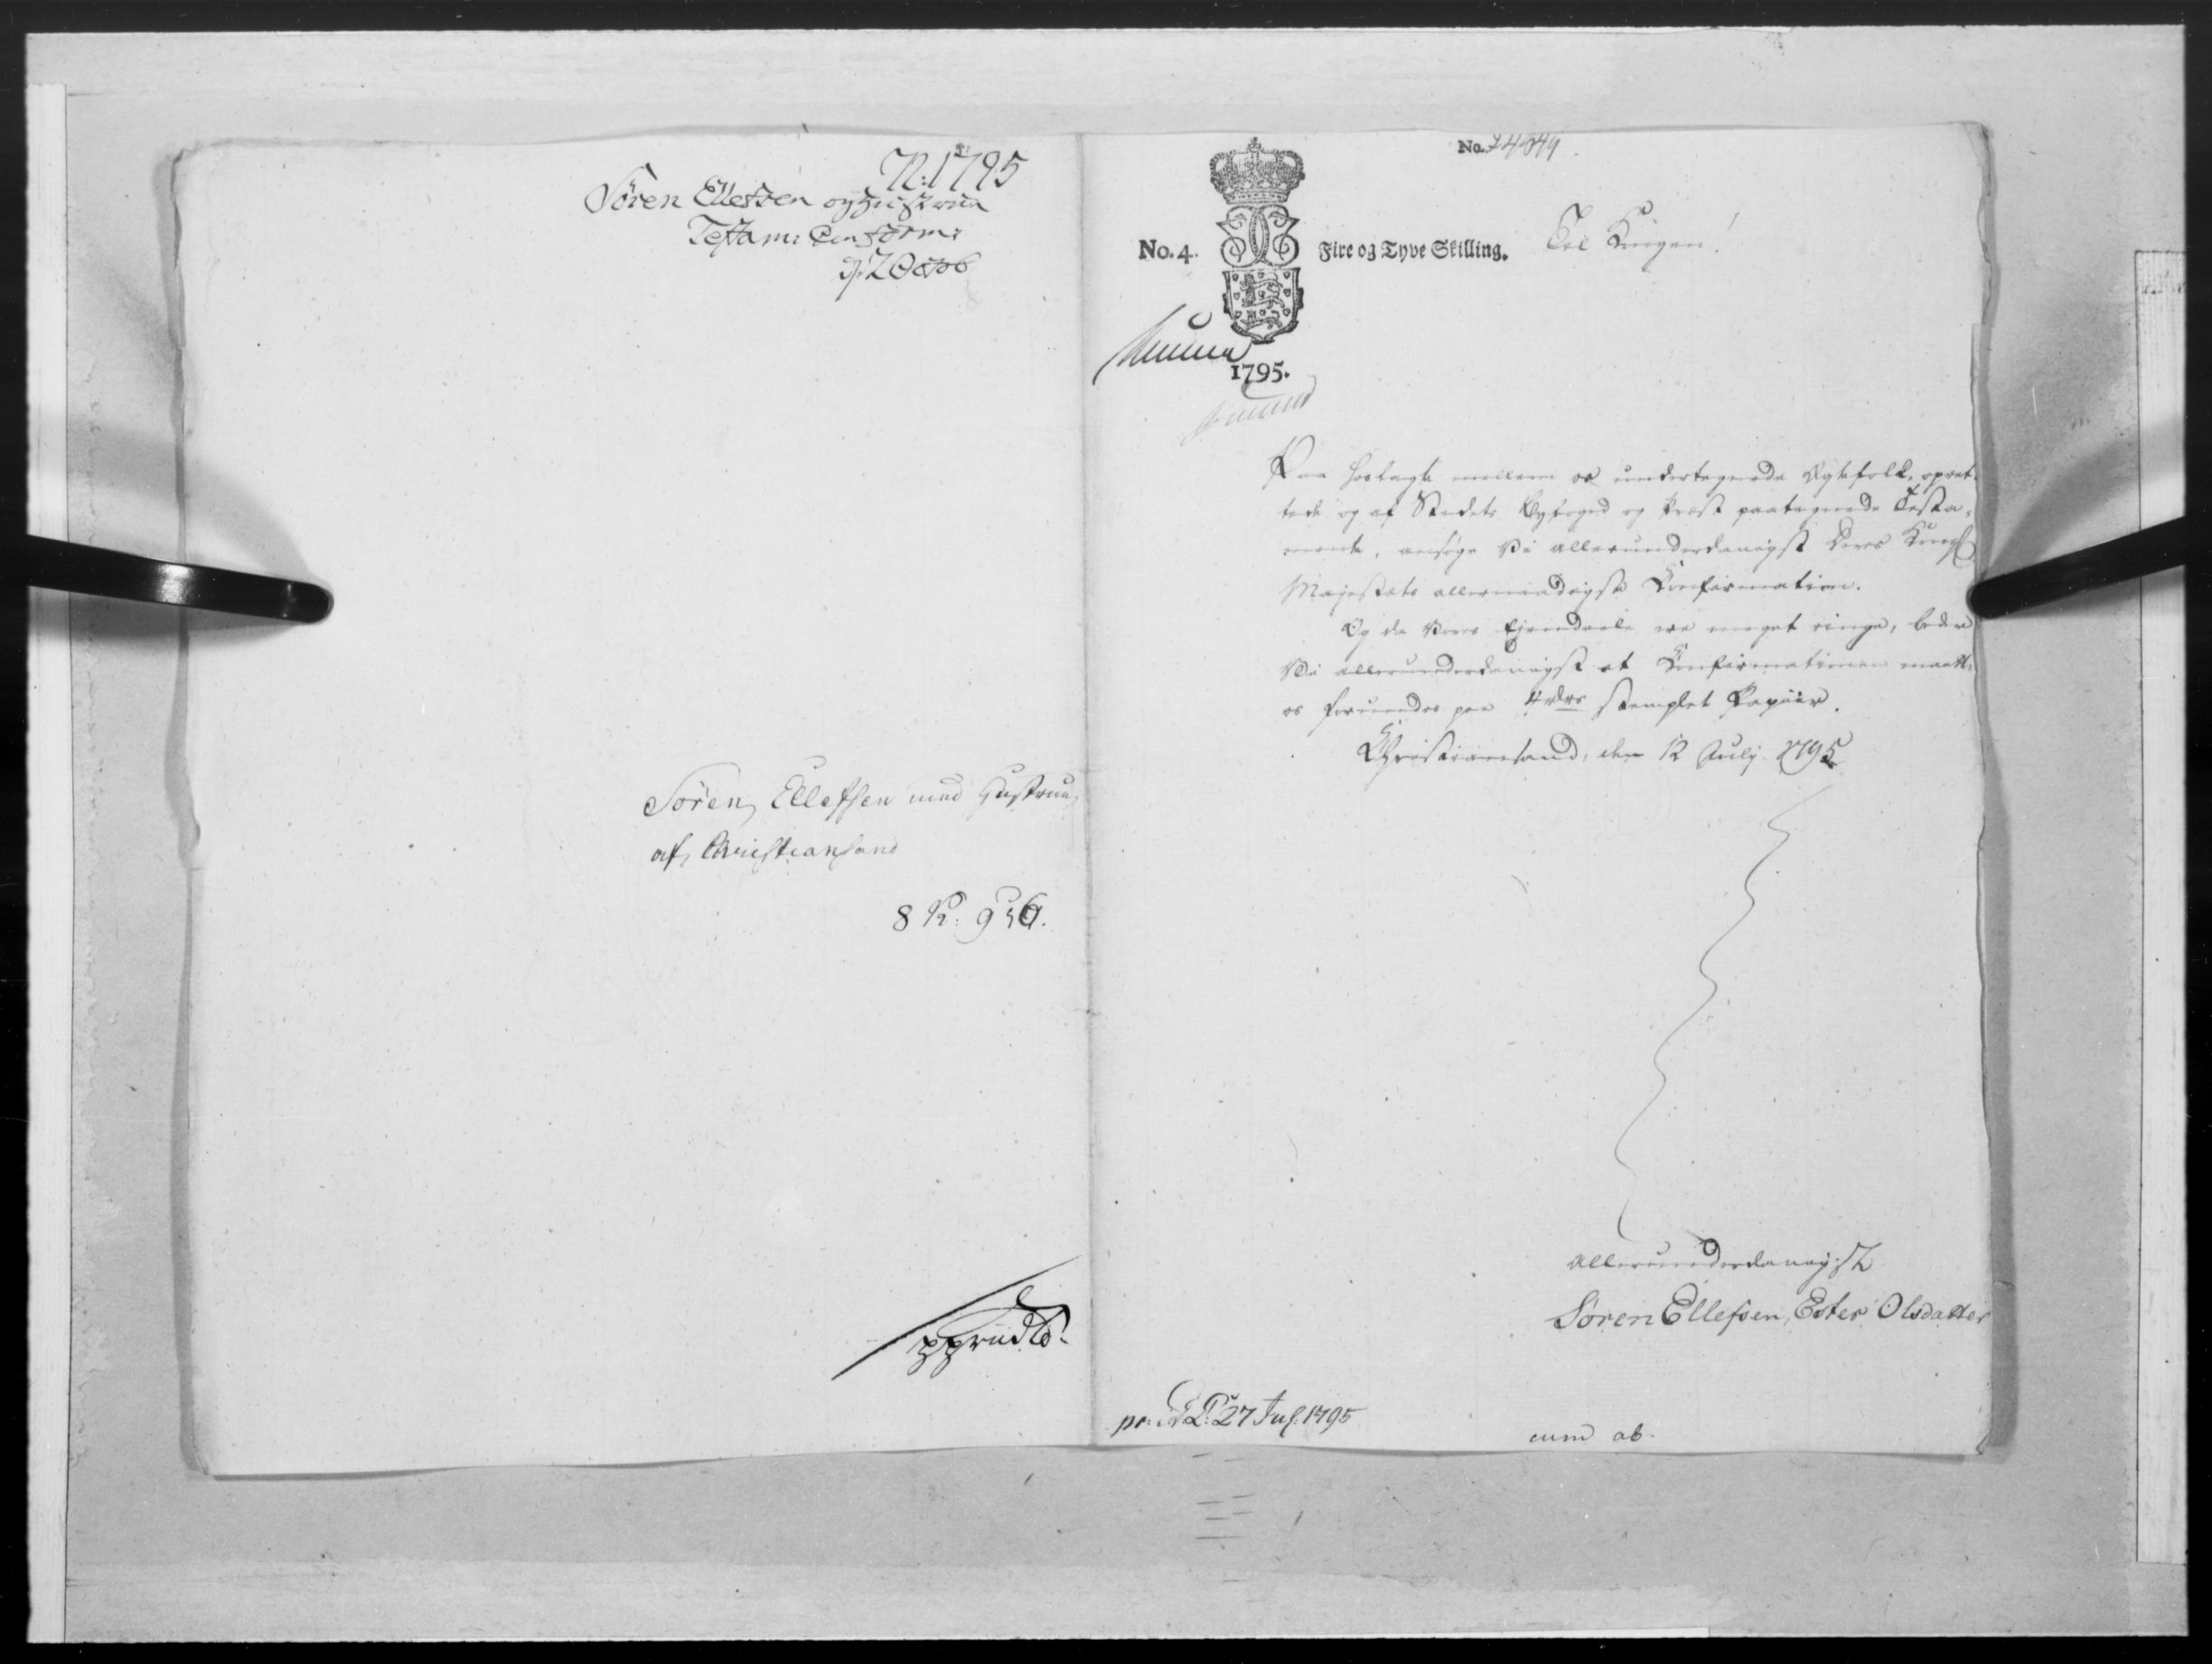 N: 1795
Søren Ellefsen og Hustrue
Testam: Confirm:
d: 2 Octob
Søren Ellefsen med Hustrue
af Christiansand
8 R: 9 ß 6.
No. 24849
No. 4. Fire og Tyve Skilling.
Til Kongen!
1795.
Paa hoslagte mellem os undertegnede Ægtefolk, opret-
tede og af Stædets Byefoged og Præst paategnede Testa-
mente, ansøge Vi allerunderdanigst Deres Kongl
Majestæts allernaadigste Confirmation.
Og da Vores Ejendeele ere meget ringe, beder
Vi allerunderdanigst at Confirmationen maatte
os forundes paa 4 rdrs stemplet Papiir.
Christiansand, den 12 Julij 1795
allerunderdanigst
Søren Ellefsen, Ester Olsdatter
pr: d: 27 Jul: 1795